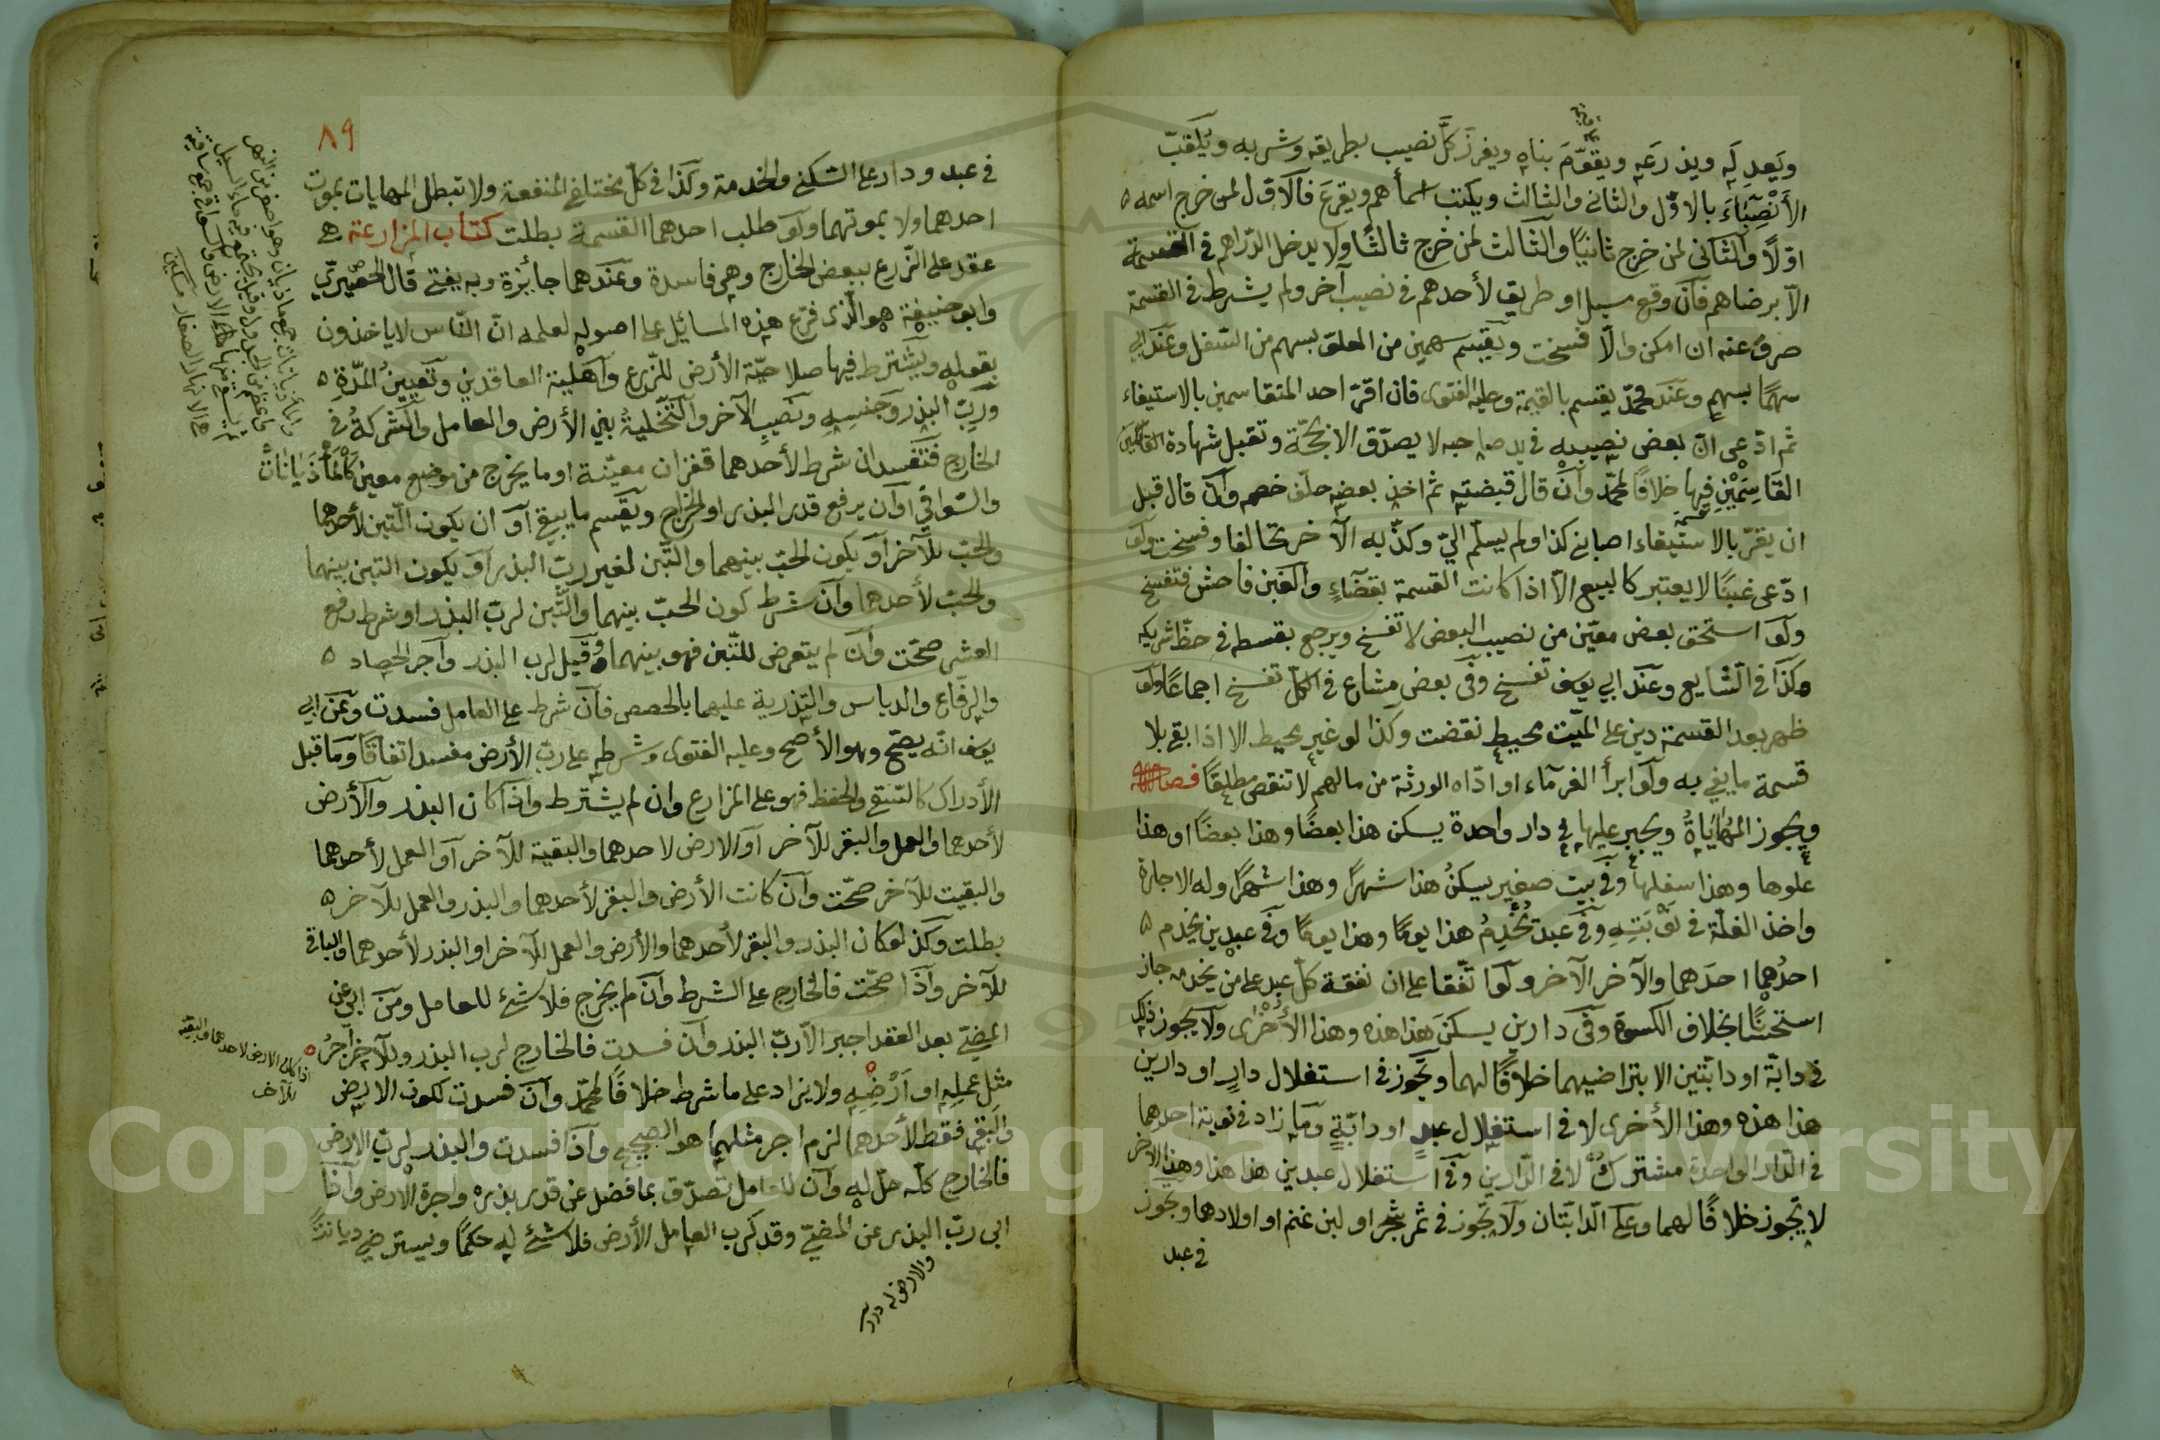 ويعدله ويذرعه ويقوم بناه ويفرز كل نصيب بطريقه وشربه ويلقب
الأنصباء بالاول والثانى والثالث ويكتب اسماءهم ويقرع فالاول لمن خرج اسمه
اولاً والثانى لمن خرج ثانيًا والثالث لمن خرج ثالثًا ولا يدخل الدراهم فى القسمة
الا برضاهم فان وقع مسيل او طريق لأحدهم فى نصيب آخر ولم يشرط فى القسمة
صرف عنه ان امكن والا فسخت ويقسم سهمين من العلو بسهم من السفل وعند ابى
سهمًا بسهم وعند محمد يقسم بالقيمة وعليه الفتوى فان اقر احد المتقاسمين بالاستيفاء
ثم ادعى ان بعض نصيبه فى يد صاحبه لا يصدق الا بحجة وتقبل شهادة
القاسمين فيها خلافًا لمحمد وان قال قبضته ثم اخذ بعضه حلف خصمه وان قال قبل
ان يقر بالاستيفاء اصابنى كذا ولم يسلم الى وكذبه الآخر تحالفا وفسخت ولو
ادعى غبنًا لا يعتبر كالبيع الا اذا كانت القسمة بقضاء والغبن فاحش فتفسخ
ولو استحق بعض معين من نصيب البعض لا تفسخ ويرجع بقسطه فى حظ شريكه
وكذا فى الشايع وعند ابى يوسف تفسخ وفى بعض مشاع فى الكل تفسخ اجماعًا ولو
ظهر بعد القسمة دين على الميت محيط نقضت وكذا لو غير محيط الا اذا بقى بلا
قسمة ما يفى به ولو ابرأ الغرماء او اداه الورثة من مالهم لا تنقض مطلقًا فصل
ويجوز المهاياة ويجبر عليها فى دار واحدة يسكن هذا بعضًا وهذا بعضًا او هذا
علوها وهذا سفلها وفى بيت صغير يسكن هذا شهرًا وهذا شهرًا وله الاجارة
واخذ الغلة فى نوبته وفى عبد يخدم هذا يومًا وهذا يومًا وفى عبدين يخدم
احدهما احدهما والآخر الآخر ولو اتفقا على ان نفقة كل عبد على من يخدمه جاز
استحسانًا بخلاف الكسوة وفى دارين يسكن هذا هذه وهذا الأخرى ولا يجوز ذلك
فى دابة او دابتين الا بتراضيهما خلافًا لهما وتجوز فى استغلال دار او دارين
هذا هذه وهذا الأخرى لا فى استغلال عبد او دابة وما زاد فى نوبة احدهما
فى الدار الواحدة مشترك لا فى الدارين وفى استغلال عبدين هذا هذا وهذا الآخر
لا يجوز خلافًا لهما وعلى الدابتان ولا تجوز فى ثمر شجر او لبن غنم او اولادها وتجوز
فى عبد
٨٩
فى عبد ودار على السكنى والخدمة وكذا فى كل مختلفى المنفعة ولا تبطل المهايات بموت
احدهما ولا بموتهما ولو طلب احدهما القسمة بطلت كتاب المزارعة هى
عقد على الزرع ببعض الخارج وهى فاسدة وعندهما جائزة وبه يفتى قال الحصيرى
وابو حنيفة هو الذى فرع هذه المسائل على اصوله لعلمه ان الناس لا ياخذون
بقوله ويشترط فيها صلاحية الأرض للزرع واهلية العاقدين وتعيين المدة
ورب البذر وجنسه ونصيب الآخر والتخلية بين الأرض والعامل والشركة فى
الخارج فتفسد ان شرط لأحدهما قفزان معينة او ما يخرج من موضع معين كالماذيانات
والسواقى او ان يرفع قدر البذر او الخراج ويقسم ما يبقى او ان يكون التبن لأحدهما
والحب للآخر او يكون الحب بينهما والتبن لغير رب البذر او يكون التبن بينهما
والحب لأحدهما وان شرط كون الحب بينهما والتبن لرب البذر او شرط رفع
العشر صحت وان لم يتعرض للتبن فهو بينهما وقيل لرب البذر وآجر الحصاد
والرفاع والدياس والتذرية عليهما بالحصص فان شرط على العامل فسدت وعن ابى
يوسف انه يصح وهو الأصح وعليه الفتوى وشرطه على رب الأرض مفسد اتفاقًا وما قبل
الأدراك كالسقى والحفظ فهو على المزارع وان لم يشترط واذا كان البذر والأرض
لأحدهما والعمل والبقر للآخر او الارض لاحدهما والبقية للآخر او العمل لأحدهما
والبقيت للآخر صحت وان كانت الأرض والبقر لأحدهما والبذر والعمل للآخر
بطلت وكذا لو كان البذر والبقر لأحدهما والأرض والعمل للآخر او البذر لأحدهما والباقى
للآخر واذا صحت فالخارج على الشرط وان لم يخرج فلا شئ للعامل ومن ابى عن
المضى بعد العقد اجبر الا رب البذر وان فسدت فالخارج لرب البذر وللآخر اجر
مثل عمله او ارضه ولا يزاد على ما شرط خلافًا لمحمد وان فسدت لكون الارض
والبقر فقط لأحدهما لزم اجر مثلهما هو الصحيح واذا فسدت والبذر لرب الارض
فالخارج كله حل له وان للعامل تصدق بما فضل عن قدر بذره واجرة الارض واذا
ابى رب البذر عن المضى وقد كرب العامل الأرض فلا شئ له حكمًا ويسترضى ديانتًا
والارض له درر
اذا كان الارض لاحدهما والبقية
للآخر
Copyright © King Saud University